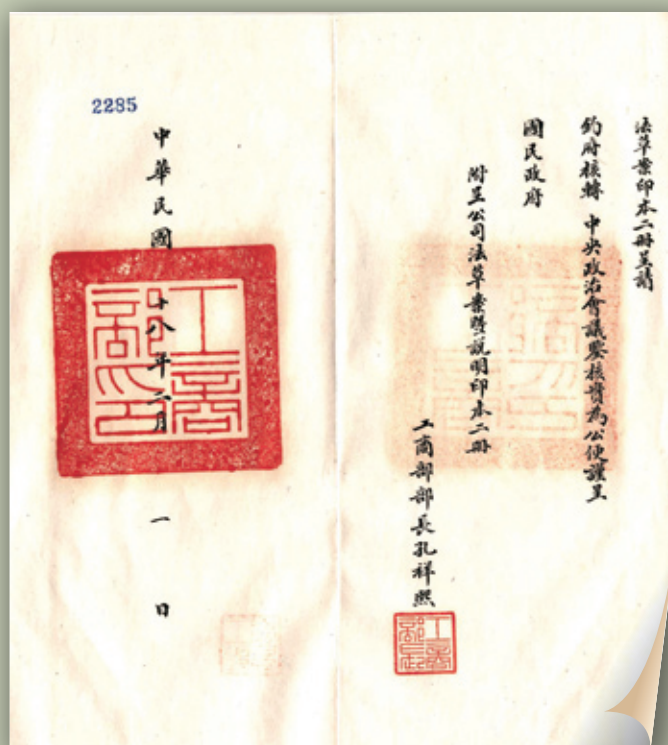 法草案印本二冊呈請
鈞府核轉 中央政治會議鑒核實為公便謹呈
國民政府
附呈公司法草案暨說明印本二冊
工商部部長孔祥熙
工商部長
2285
中華民國十八年二月一日
工商部印